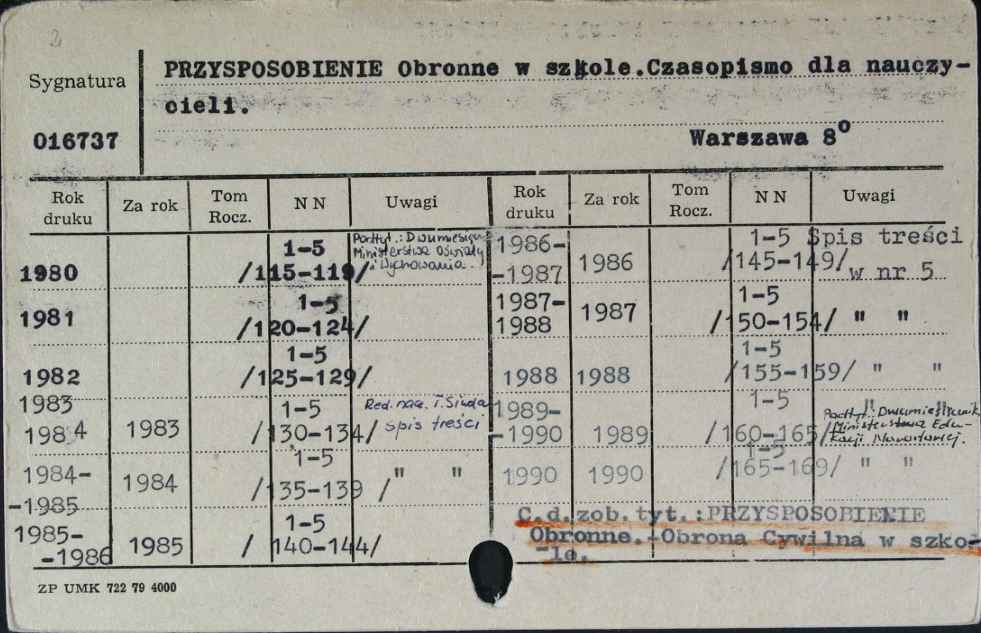 2
PRZYSPOSOBIENIE Obronne w szkole.Czasopismo dla nauczy-
cieli.
Sygnatura
016737
Warszawa 8°
Rok druku Za rok Tom Rocz. NN Uwagi Rok druku Za rok Tom Rocz. NN Uwagi
1980 1-5 /115-119/ Podtyt.: Dwumiesięcz. Ministerstwa Oświaty i Wychowania.
1981 1-5 /120-124/
1982 1-5 /125-129/
1983 1984 1983 1-5 /130-134/ Red. nacz. T. Siuda spis treści
1984- -1985 1984 1-5 /135-139 / " "
1985- -1986 1985 1-5 / 140-144/
1986- -1987 1986 1-5 /145-149/ Spis treści w nr 5
1987- 1988 1987 1-5 /150-154/ " "
1988 1988 1-5 /155-159/ " "
1989- -1990 1989 1-5 /160-165/ " " Podtyt.: Dwumiesięcznik Ministerstwa Edukacji Narodowej.
1990 1990 1-5 /165-169/ " "
C.d.zob.tyt.:PRZYSPOSOBIENIE
Obronne.-Obrona Cywilna w szko-
-le.
ZP UMK 722 79 4000